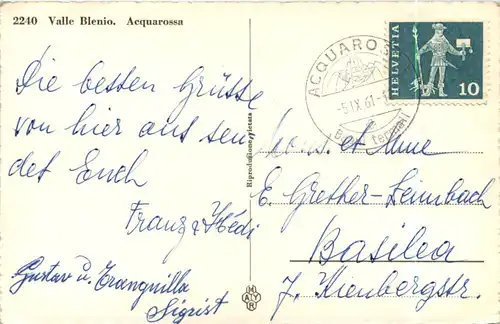 2240 Valle Blenio. Acquarossa
Die besten Grüsse
von hier aus sen
det Euch
Franz u Hedi
Gustav u. Tranquilla
Sigrist
Riproduzione vietata
ACQUAROS
-5.IX.61-
termali
HELVETIA
10
Mons. et Mme
E. Grether-Leimbach
Basilea
7. Kienbergstr.